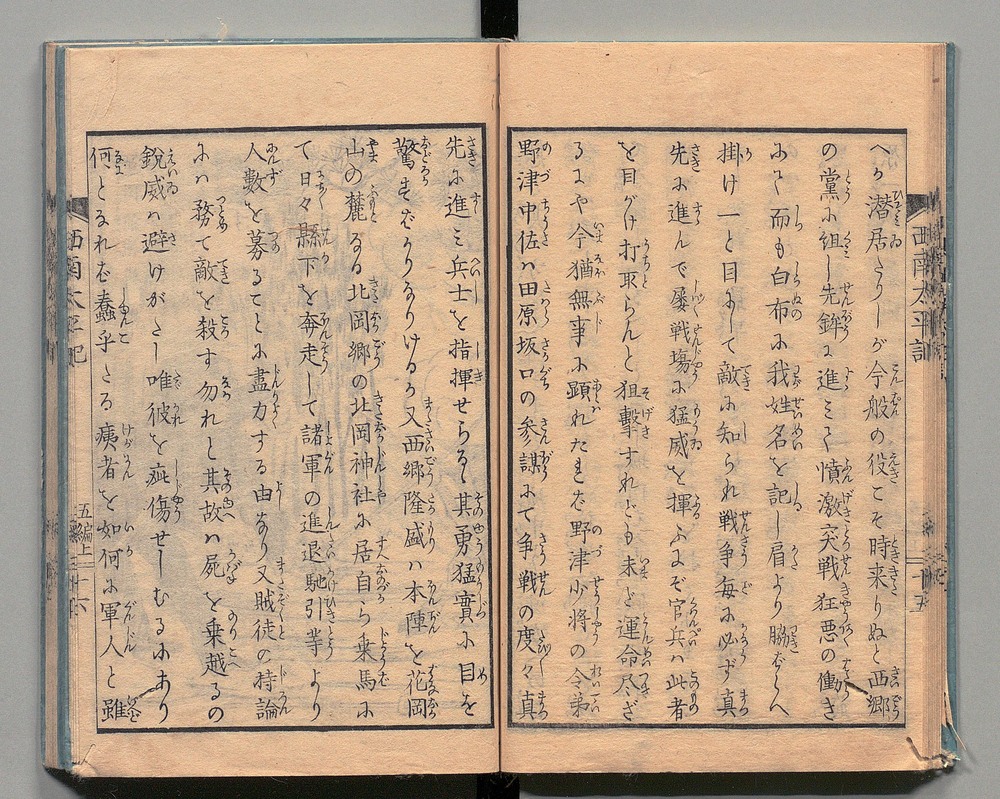 へか潜居たりしが今般の役こそ時来りぬと西郷
の黨に組し先鉾に進ミて憤激突戦狂悪の働き
にて而も白布に我姓名を記し肩より脇ばらへ
掛け一と目にして敵に知られ戦争毎に必ず真
先に進んで屡戦塲に猛威を揮ふにぞ官兵ハ此者
を目がけ打取らんと狙撃すれども未だ運命尽ざ
るにや今猶無事に顕れたまた野津少将の令弟
野津中佐ハ田原坂口の参謀にて争戦の度々真
先に進ミ兵士を指揮せらるゝ其勇猛實に目を
驚すばかりなりけるか又西郷隆盛ハ本陣を花岡
山の麓なる北岡郷の北岡神社に居自ら乗馬に
て日々縣下を奔走して諸軍の進退馳引等より
人數を募るてとに盡力する由なり又賊徒の持論
にハ務て敵を殺す勿れと其故ハ屍を乗越るの
鋭威ハ避けがたし唯彼を疵傷せしむるにあり
何となれば蠢乎たる痍者を如何に軍人と雖
西南太平記
五編上
十五
西南太平記
五編上
十六